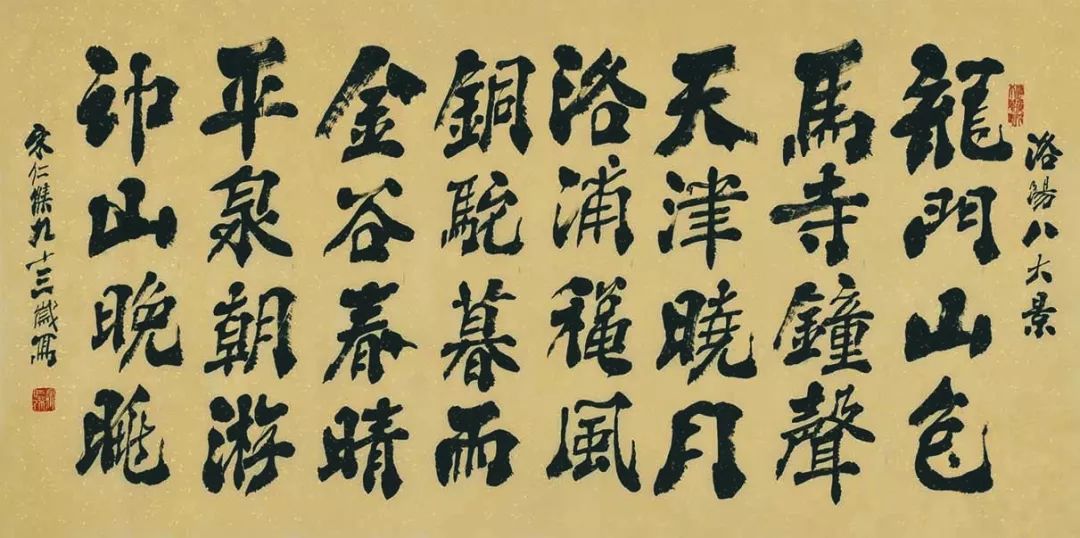 洛陽八大景
龍門山色
馬寺鐘聲
天津曉月
洛浦穐風
銅駝暮雨
金谷春晴
平泉朝游
邙山晚眺
宋仁傑九十三歲寫